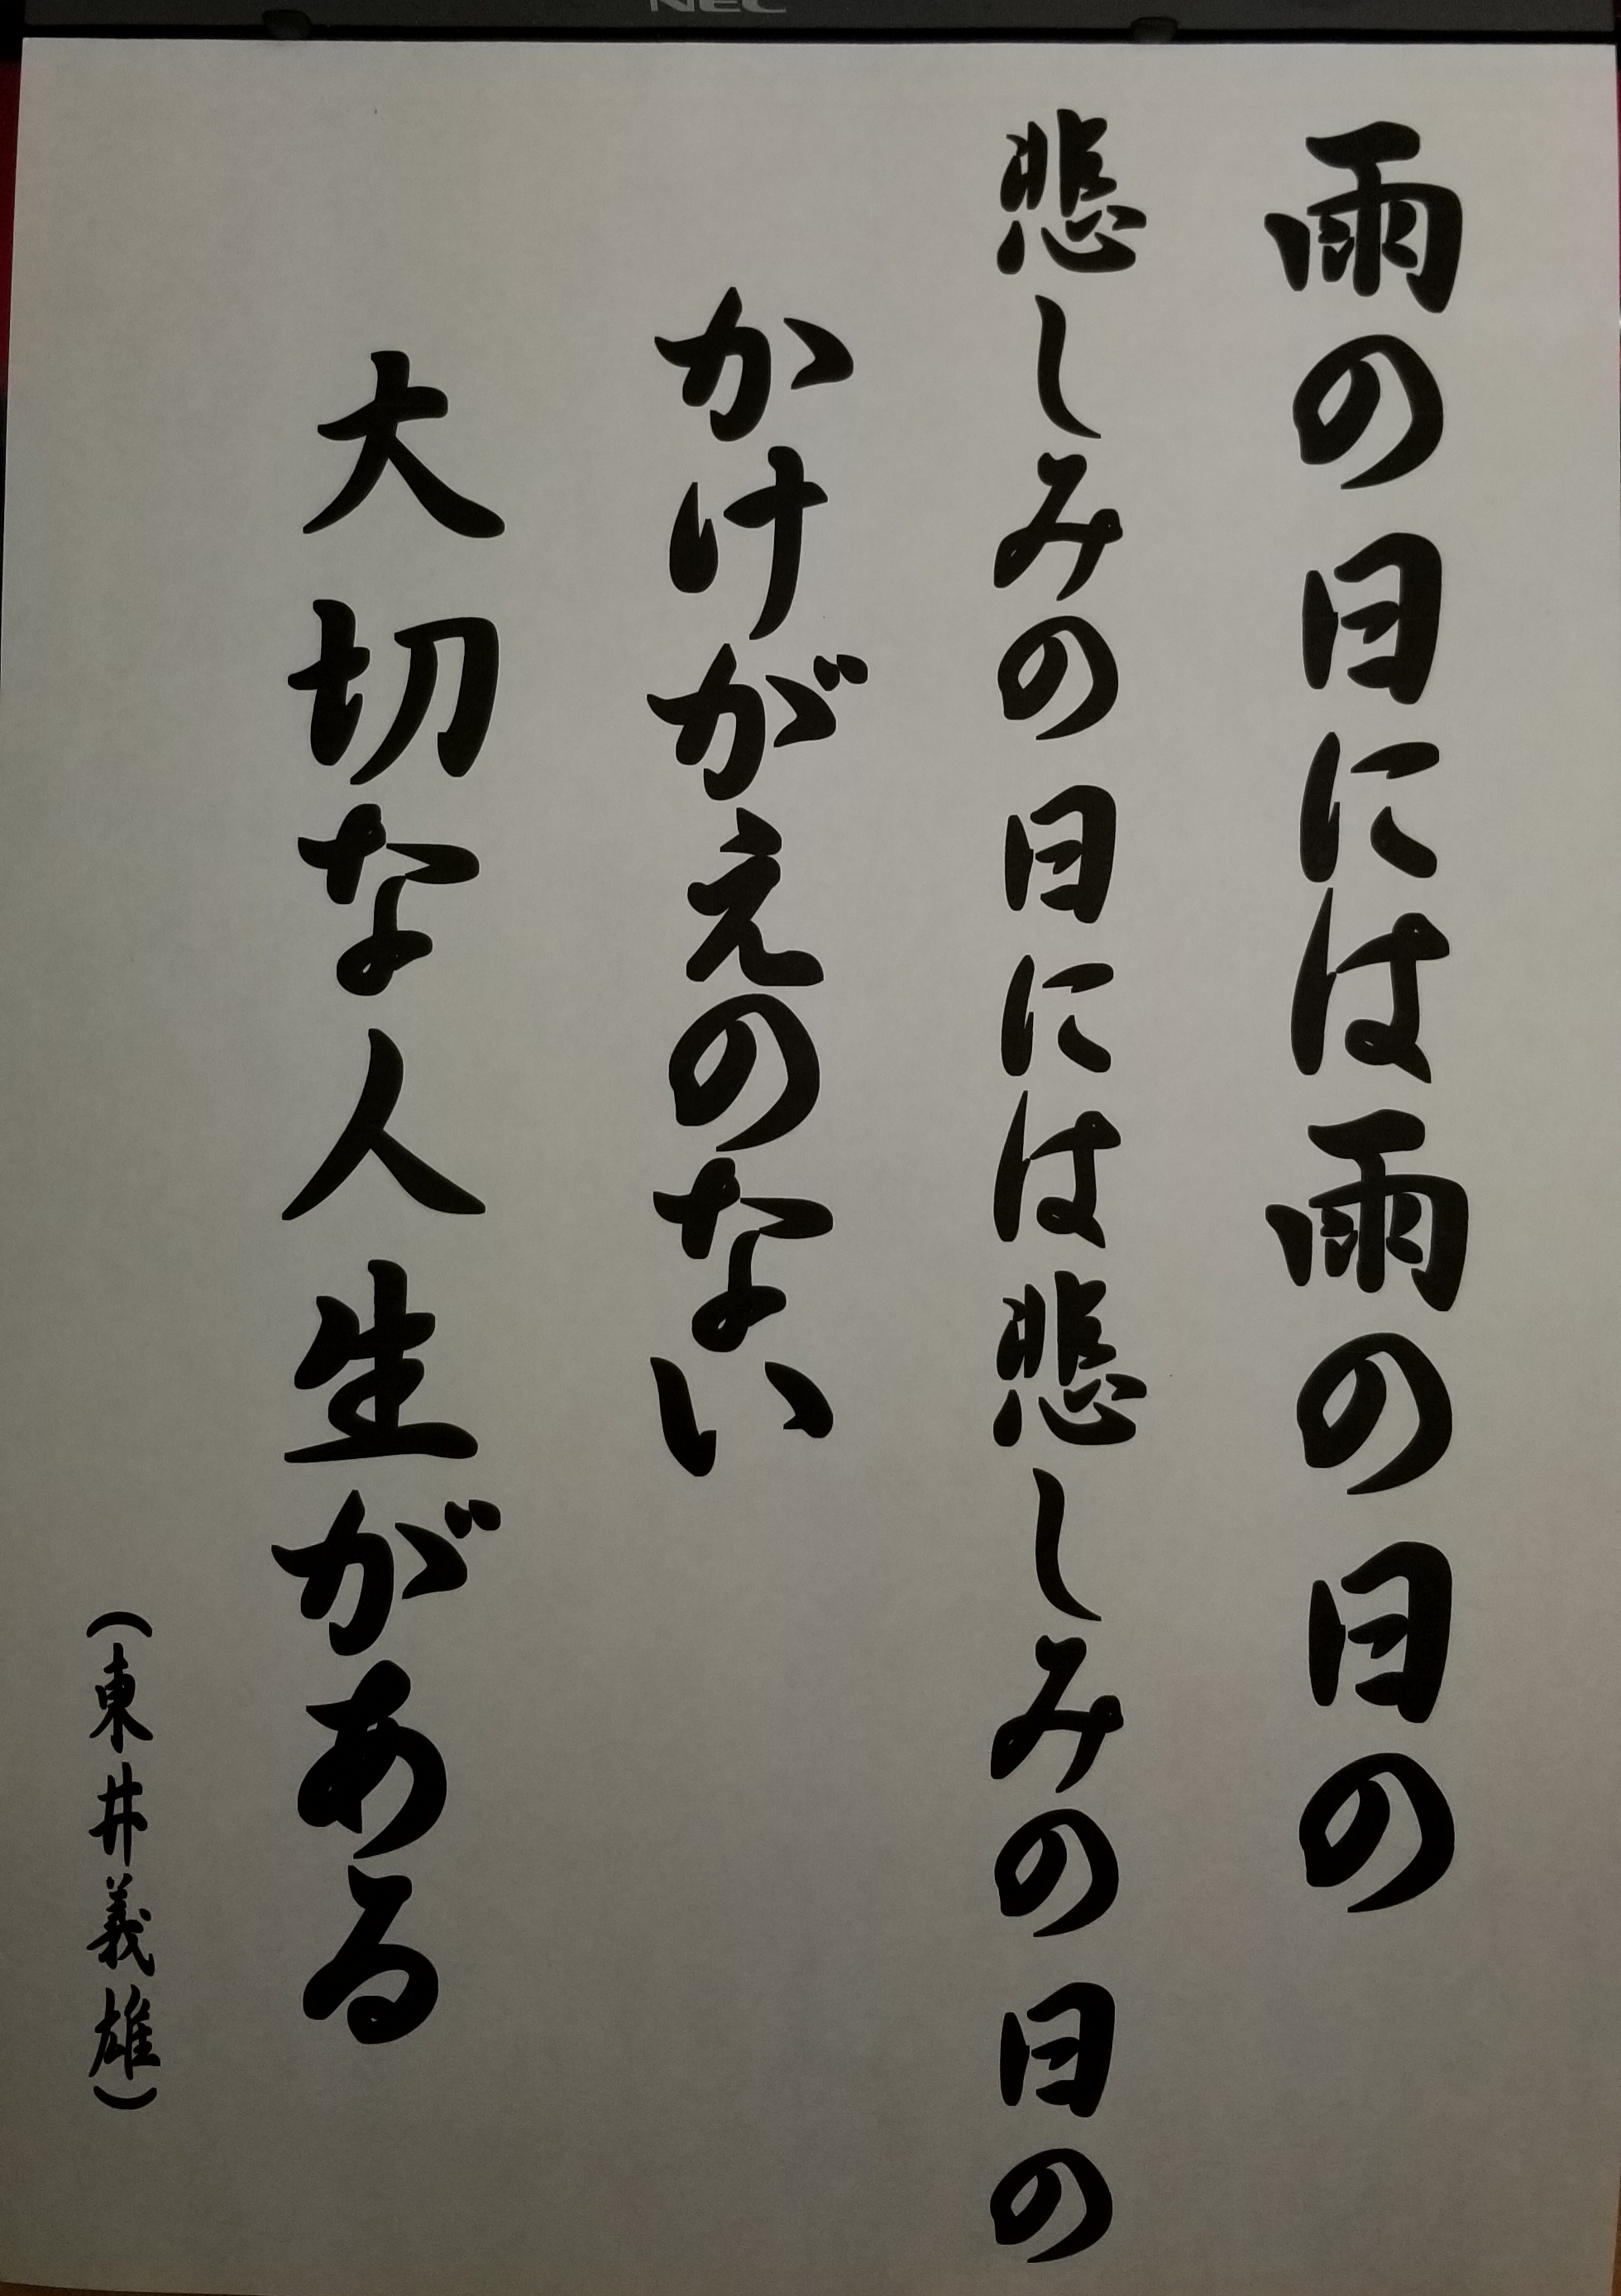 NEC
雨の日には雨の日の
悲しみの日には悲しみの日の
かけがえのない
大切な人生がある
(東井義雄)